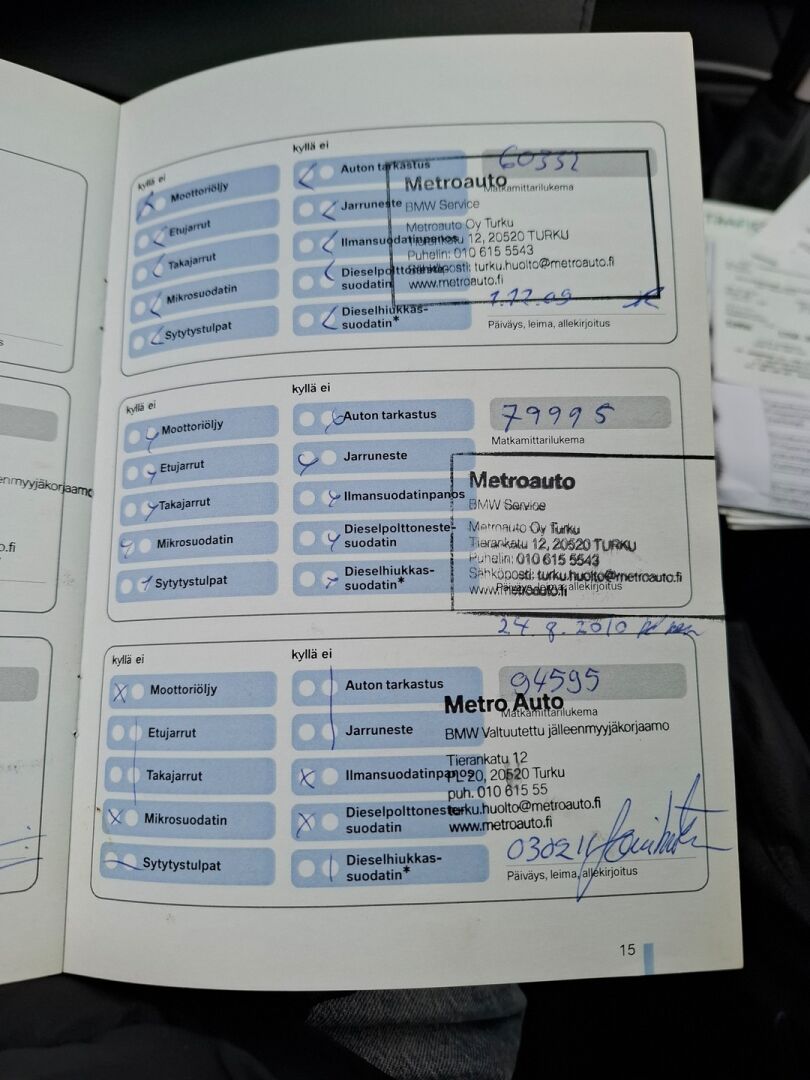 kyllä ei
Moottoriöljy
Etujarrut
Takajarrut
Mikrosuodatin
Sytytystulpat
kyllä ei
Auton tarkastus
Jarruneste
Ilmansuodatinpanos
Dieselpolttoneste-
suodatin
Dieselhiukkas-
suodatin*
60332
Matkamittarilukema
Metroauto
BMW Service
Metroauto Oy Turku
Tierankatu 12, 20520 TURKU
Puhelin: 010 615 5543
Sähköposti: turku.huolto@metroauto.fi
www.metroauto.fi
1.12.09
Päiväys, leima, allekirjoitus
kyllä ei
Moottoriöljy
Etujarrut
Takajarrut
Mikrosuodatin
Sytytystulpat
kyllä ei
Auton tarkastus
Jarruneste
Ilmansuodatinpanos
Dieselpolttoneste-
suodatin
Dieselhiukkas-
suodatin*
79995
Matkamittarilukema
Metroauto
BMW Service
Metroauto Oy Turku
Tierankatu 12, 20520 TURKU
Puhelin: 010 615 5543
Sähköposti: turku.huolto@metroauto.fi
www.metroauto.fi
Päiväys, leima, allekirjoitus
24.8.2010
kyllä ei
Moottoriöljy
Etujarrut
Takajarrut
Mikrosuodatin
Sytytystulpat
kyllä ei
Auton tarkastus
Jarruneste
Ilmansuodatinpanos
Dieselpolttoneste-
suodatin
Dieselhiukkas-
suodatin*
94595
Matkamittarilukema
Metro Auto
BMW Valtuutettu jälleenmyyjäkorjaamo
Tierankatu 12
PL 20, 20520 Turku
puh. 010 615 55
turku.huolto@metroauto.fi
www.metroauto.fi
030211
Päiväys, leima, allekirjoitus
15